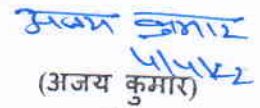 अजय कुमार
(अजय कुमार)